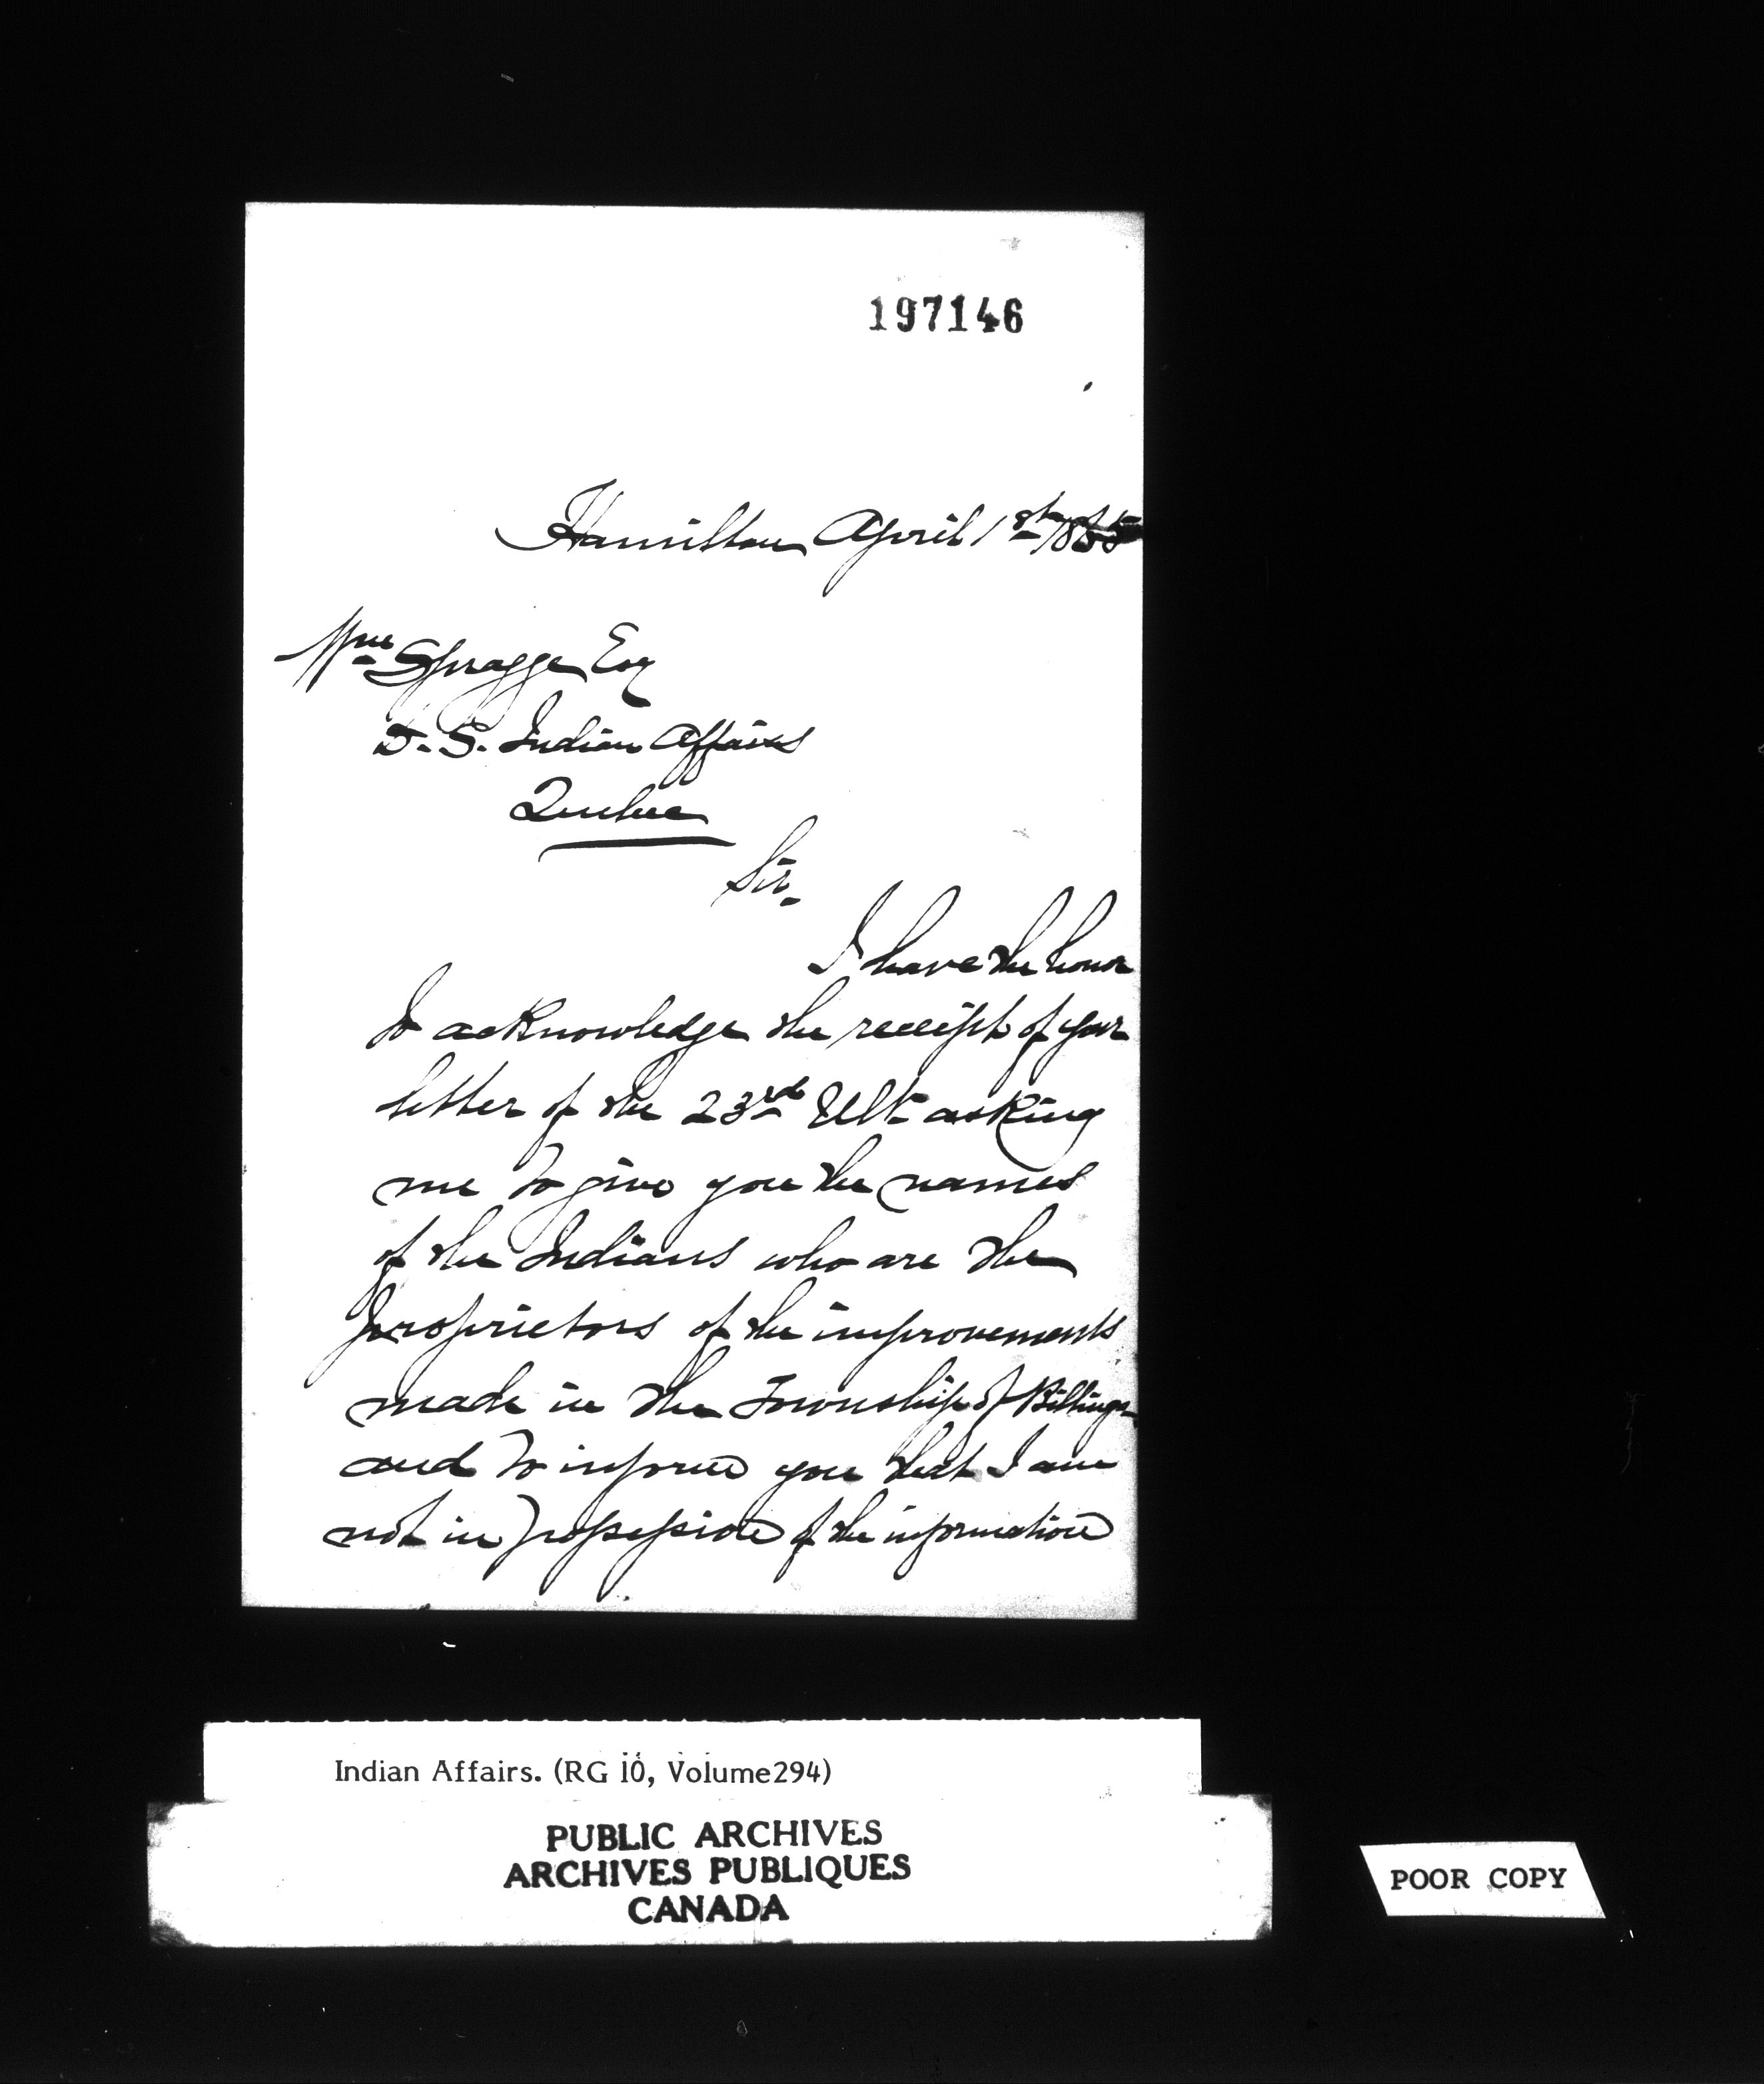 197146
Hamilton April 1st
Wm Spragge Esq
D. S. Indian Affairs
Quebec
Sir,
I have the honor
to acknowledge the receipt of your
letter of the 23rd Ult asking
me to give you the names
of the Indians who are the
proprietors of the improvements
made in the Township of Billings
and to inform you that I am
not in possession of the information
Indian Affairs. (RG 10, Volume294)
PUBLIC ARCHIVES
ARCHIVES PUBLIQUES
CANADA
POOR COPY